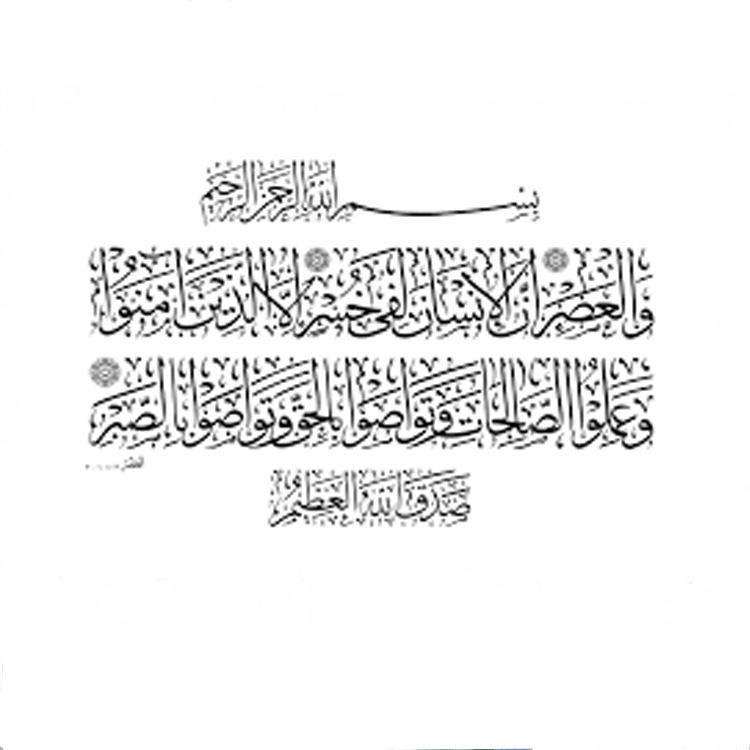 بِسْمِ اللَّهِ الرَّحْمَنِ الرَّحِيمِ
وَالْعَصْرِ إِنَّ الْإِنْسَانَ لَفِي خُسْرٍ إِلَّا الَّذِينَ آمَنُوا
وَعَمِلُوا الصَّالِحَاتِ وَتَوَاصَوْا بِالْحَقِّ وَتَوَاصَوْا بِالصَّبْرِ
صَدَقَ اللَّهُ الْعَظِيمُ